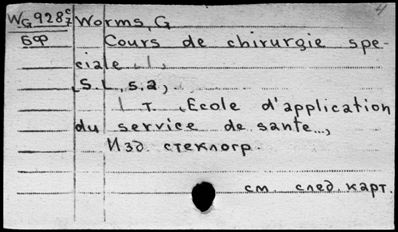 4
WG 928 c/7 Worms, G
БФ Cours de chirurgie spe-
ciale I,
S. L, s.a,
I т. Ecole d'application
du service de sante...,
Изд. стеклогр.
см. след. карт.